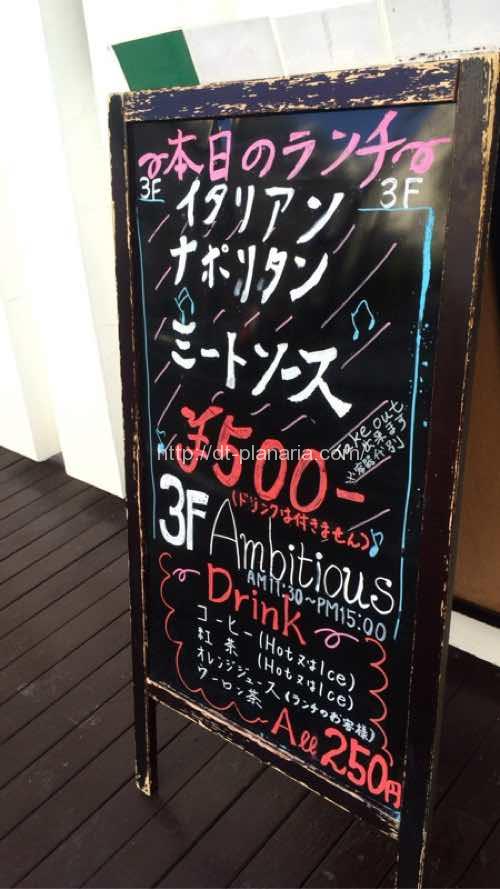 本日のランチ
3F
3F
イタリアン
ナポリタン
ミートソース
¥500-
(ドリンクは付きません)
take out
出来ます
※容器代別
http://dt-planaria.com/
3F Ambitious
AM11:30～PM15:00
Drink
コーヒー(Hot又はIce)
紅茶 (Hot又はIce)
オレンジジュース
ウーロン茶
(ランチのお客様)
All 250円